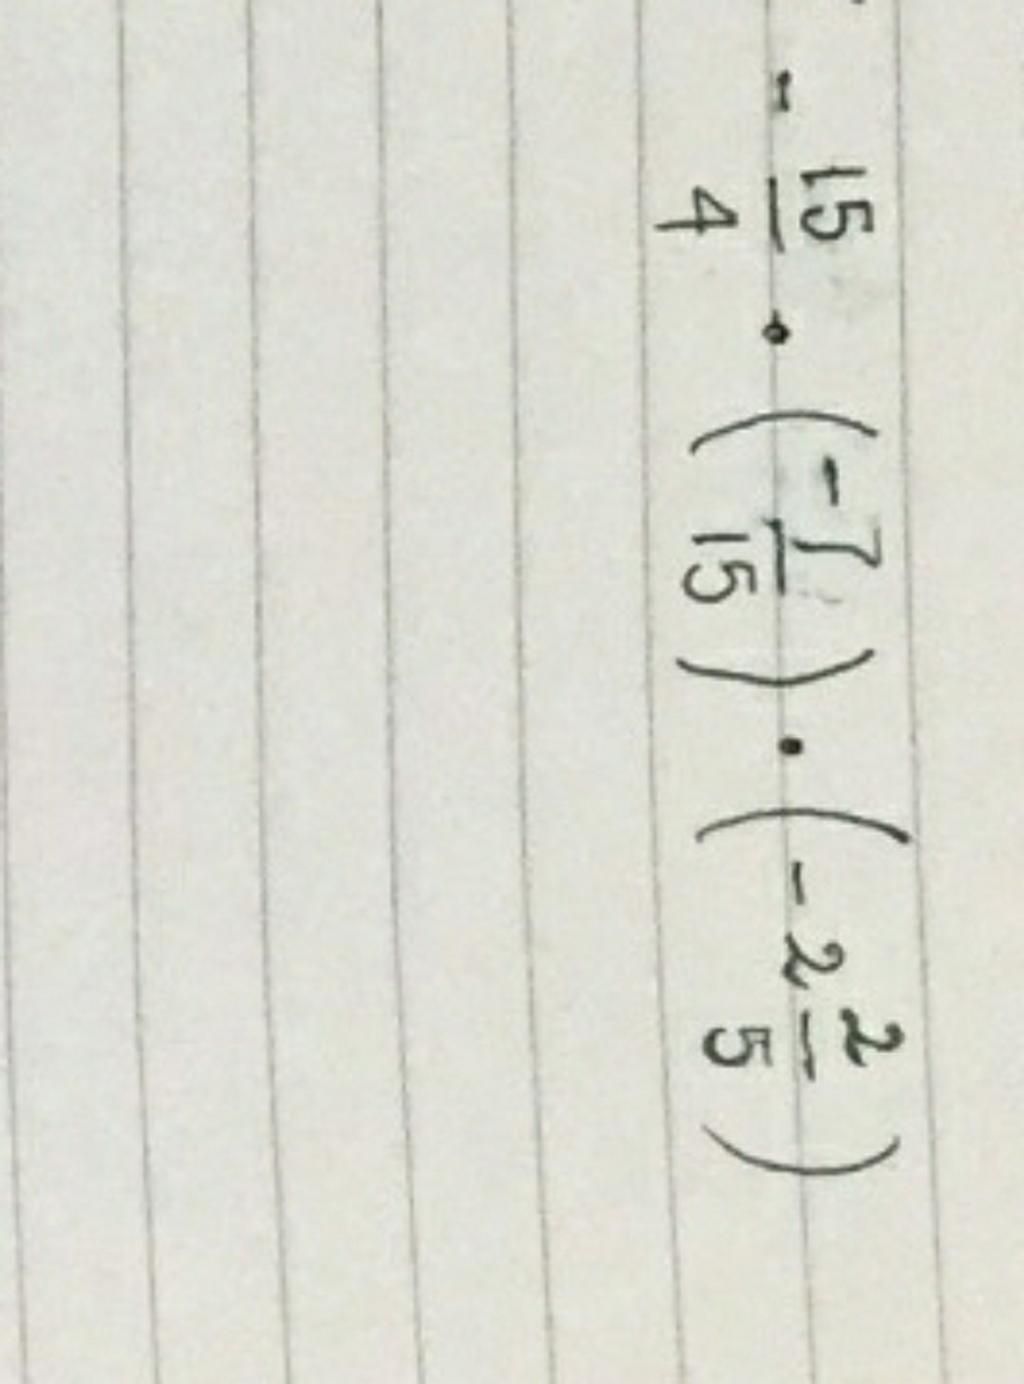 - 15/4 · (-7/15) · (-2 2/5)